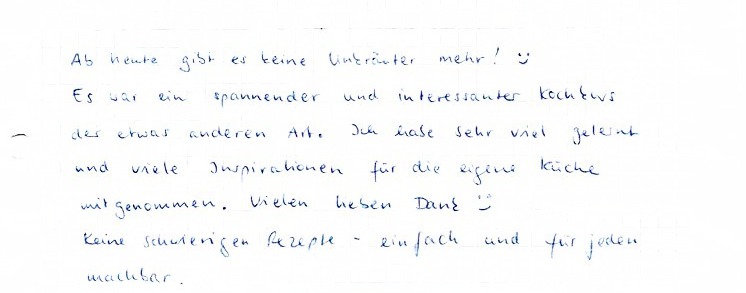 Ab heute gibt es keine Unkräuter mehr! :)
Es war ein spannender und interessanter Kochkurs
der etwas anderen Art. Ich habe sehr viel gelernt
und viele Inspirationen für die eigene Küche
mitgenommen. Vielen lieben Dank :)
Keine schwierigen Rezepte - einfach und für jeden
machbar.